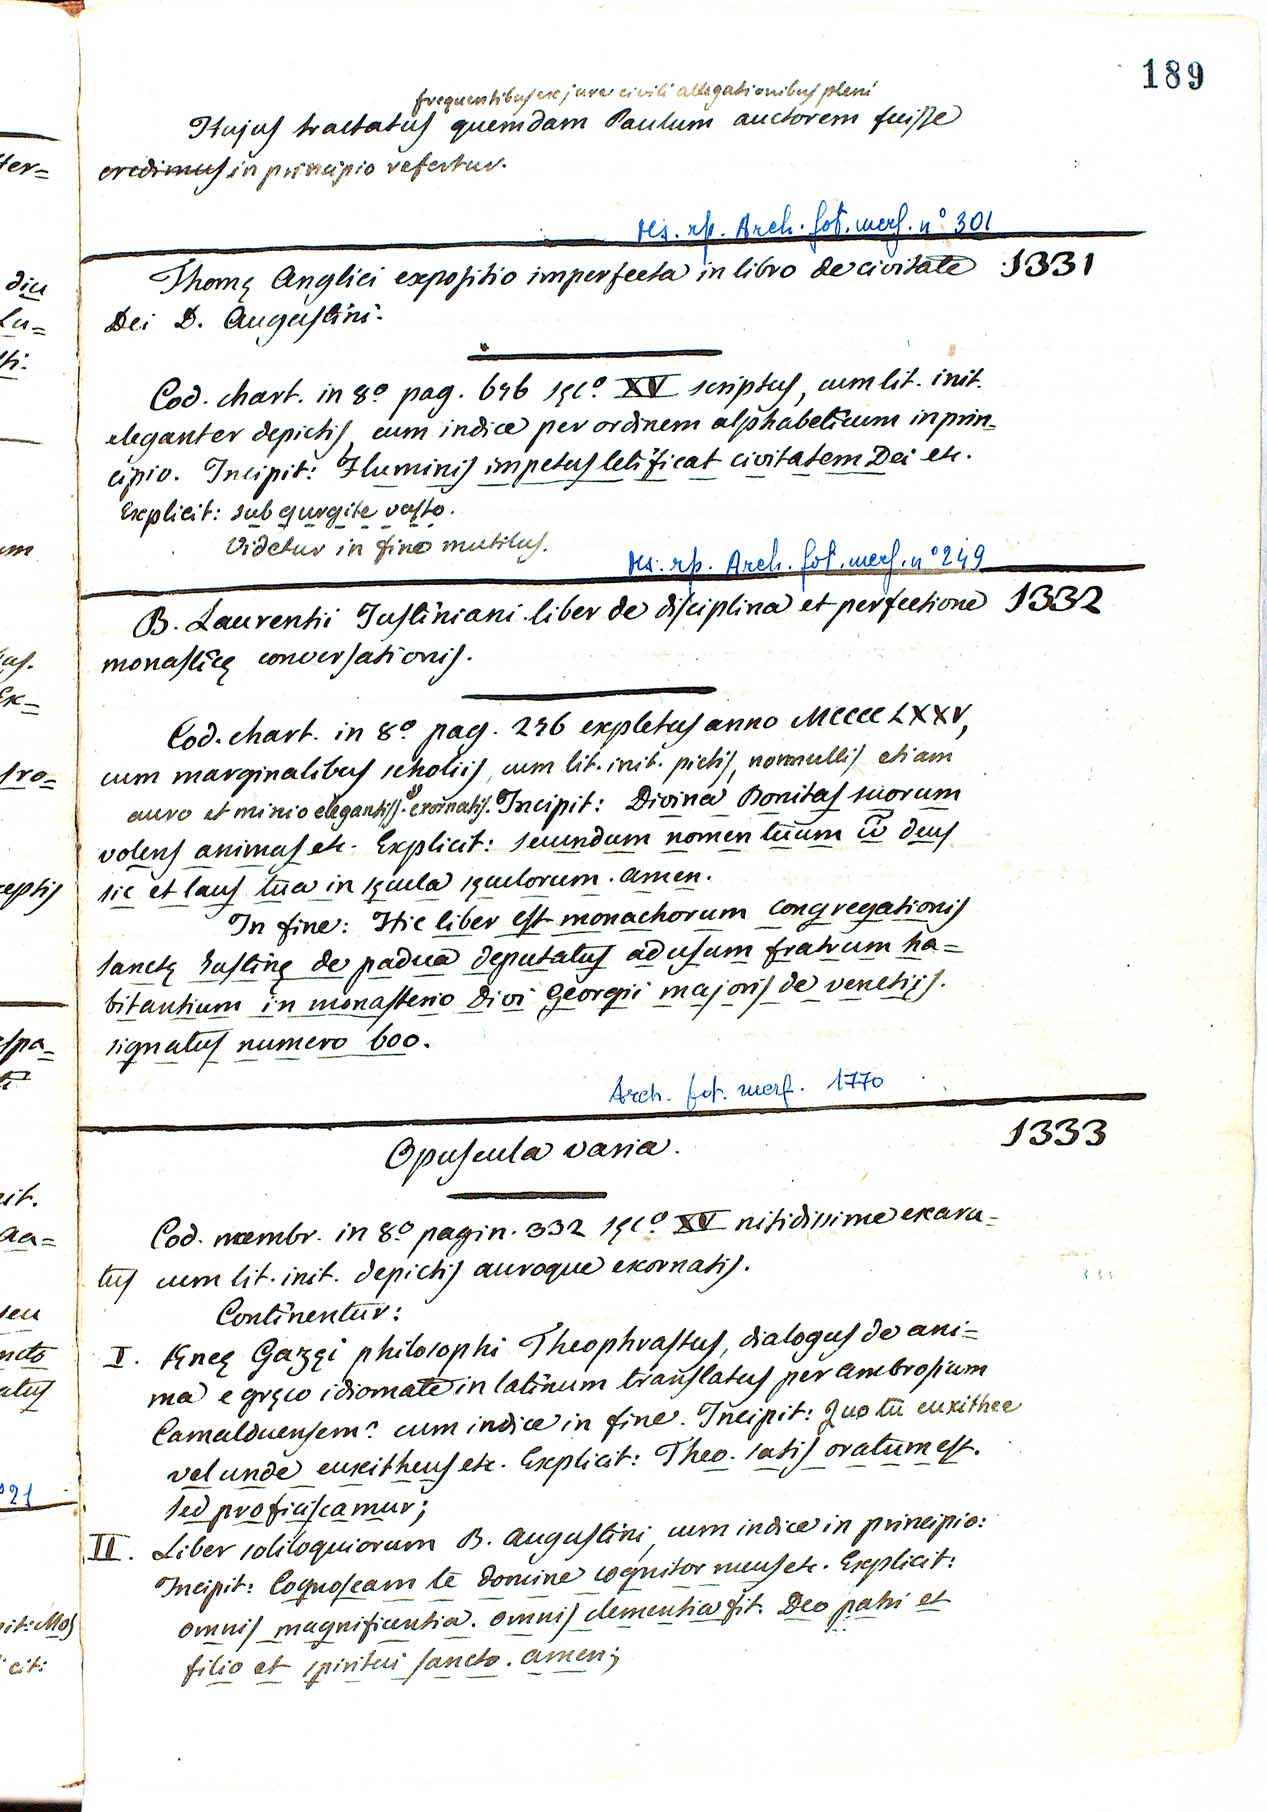 189
frequentibus ex jure civili allegationibus pleni
Hujus tractatus quemdam Paulum auctorem fuisse
credimus in principio refertur.
Ms. rp. Arch. fot. merf. n° 301
Thomę Anglici expositio imperfecta in libro de civitate 1331
Dei D. Augustini.
Cod. chart. in 8° pag. 696 sęc° XV scriptus, cum lit. init.
eleganter depictis, cum indice per ordinem alphabeticum in prin=
cipio. Incipit: Fluminis impetus letificat civitatem Dei etc.
Explicit: sub gurgite vasto.
Videtur in fine mutilus.
Ms. rp. Arch. fot. merf. n° 249
B. Laurentii Justiniani liber de disciplina et perfectione 1332
monasticę conversationis.
Cod. chart. in 8° pag. 296 expletus anno MCCCCLXXV,
cum marginalibus scholiis, cum lit. init. pictis, nonnullis etiam
auro et minio elegantiss. exornatis. Incipit: Divina Bonitas suorum
volens animas etc. Explicit: secundum nomen tuum deus
sic et laus tua in sęcula sęculorum. amen.
In fine: Hic liber est monachorum congregationis
sanctę Justinę de padua deputatus ad usum fratrum ha=
bitantium in monasterio Divi Georgii majoris de venetiis.
signatus numero 600.
Arch. fot. merf. 1770
Opuscula varia. 1333
Cod. membr. in 8° pagin. 332 sęc° XV nitidissime exara=
tus cum lit. init. depictis auroque exornatis.
Continentur:
I. Ęneę Gazęi philosophi Theophrastus, dialogus de ani=
ma e gręco idiomate in latinum translatus per Ambrosium
Camalduensem: cum indice in fine. Incipit: Quo tu euxithee
vel unde euxitheus etc. Explicit: Theo. satis oratum est.
sed proficiscamur;
II. Liber soliloquiorum B. Augustini, cum indice in principio:
Incipit: Cognoscam te domine cognitor meus etc. Explicit:
omnis magnificentia. omnis clementia fit. Deo patri et
filio et spiritui sancto. amen;